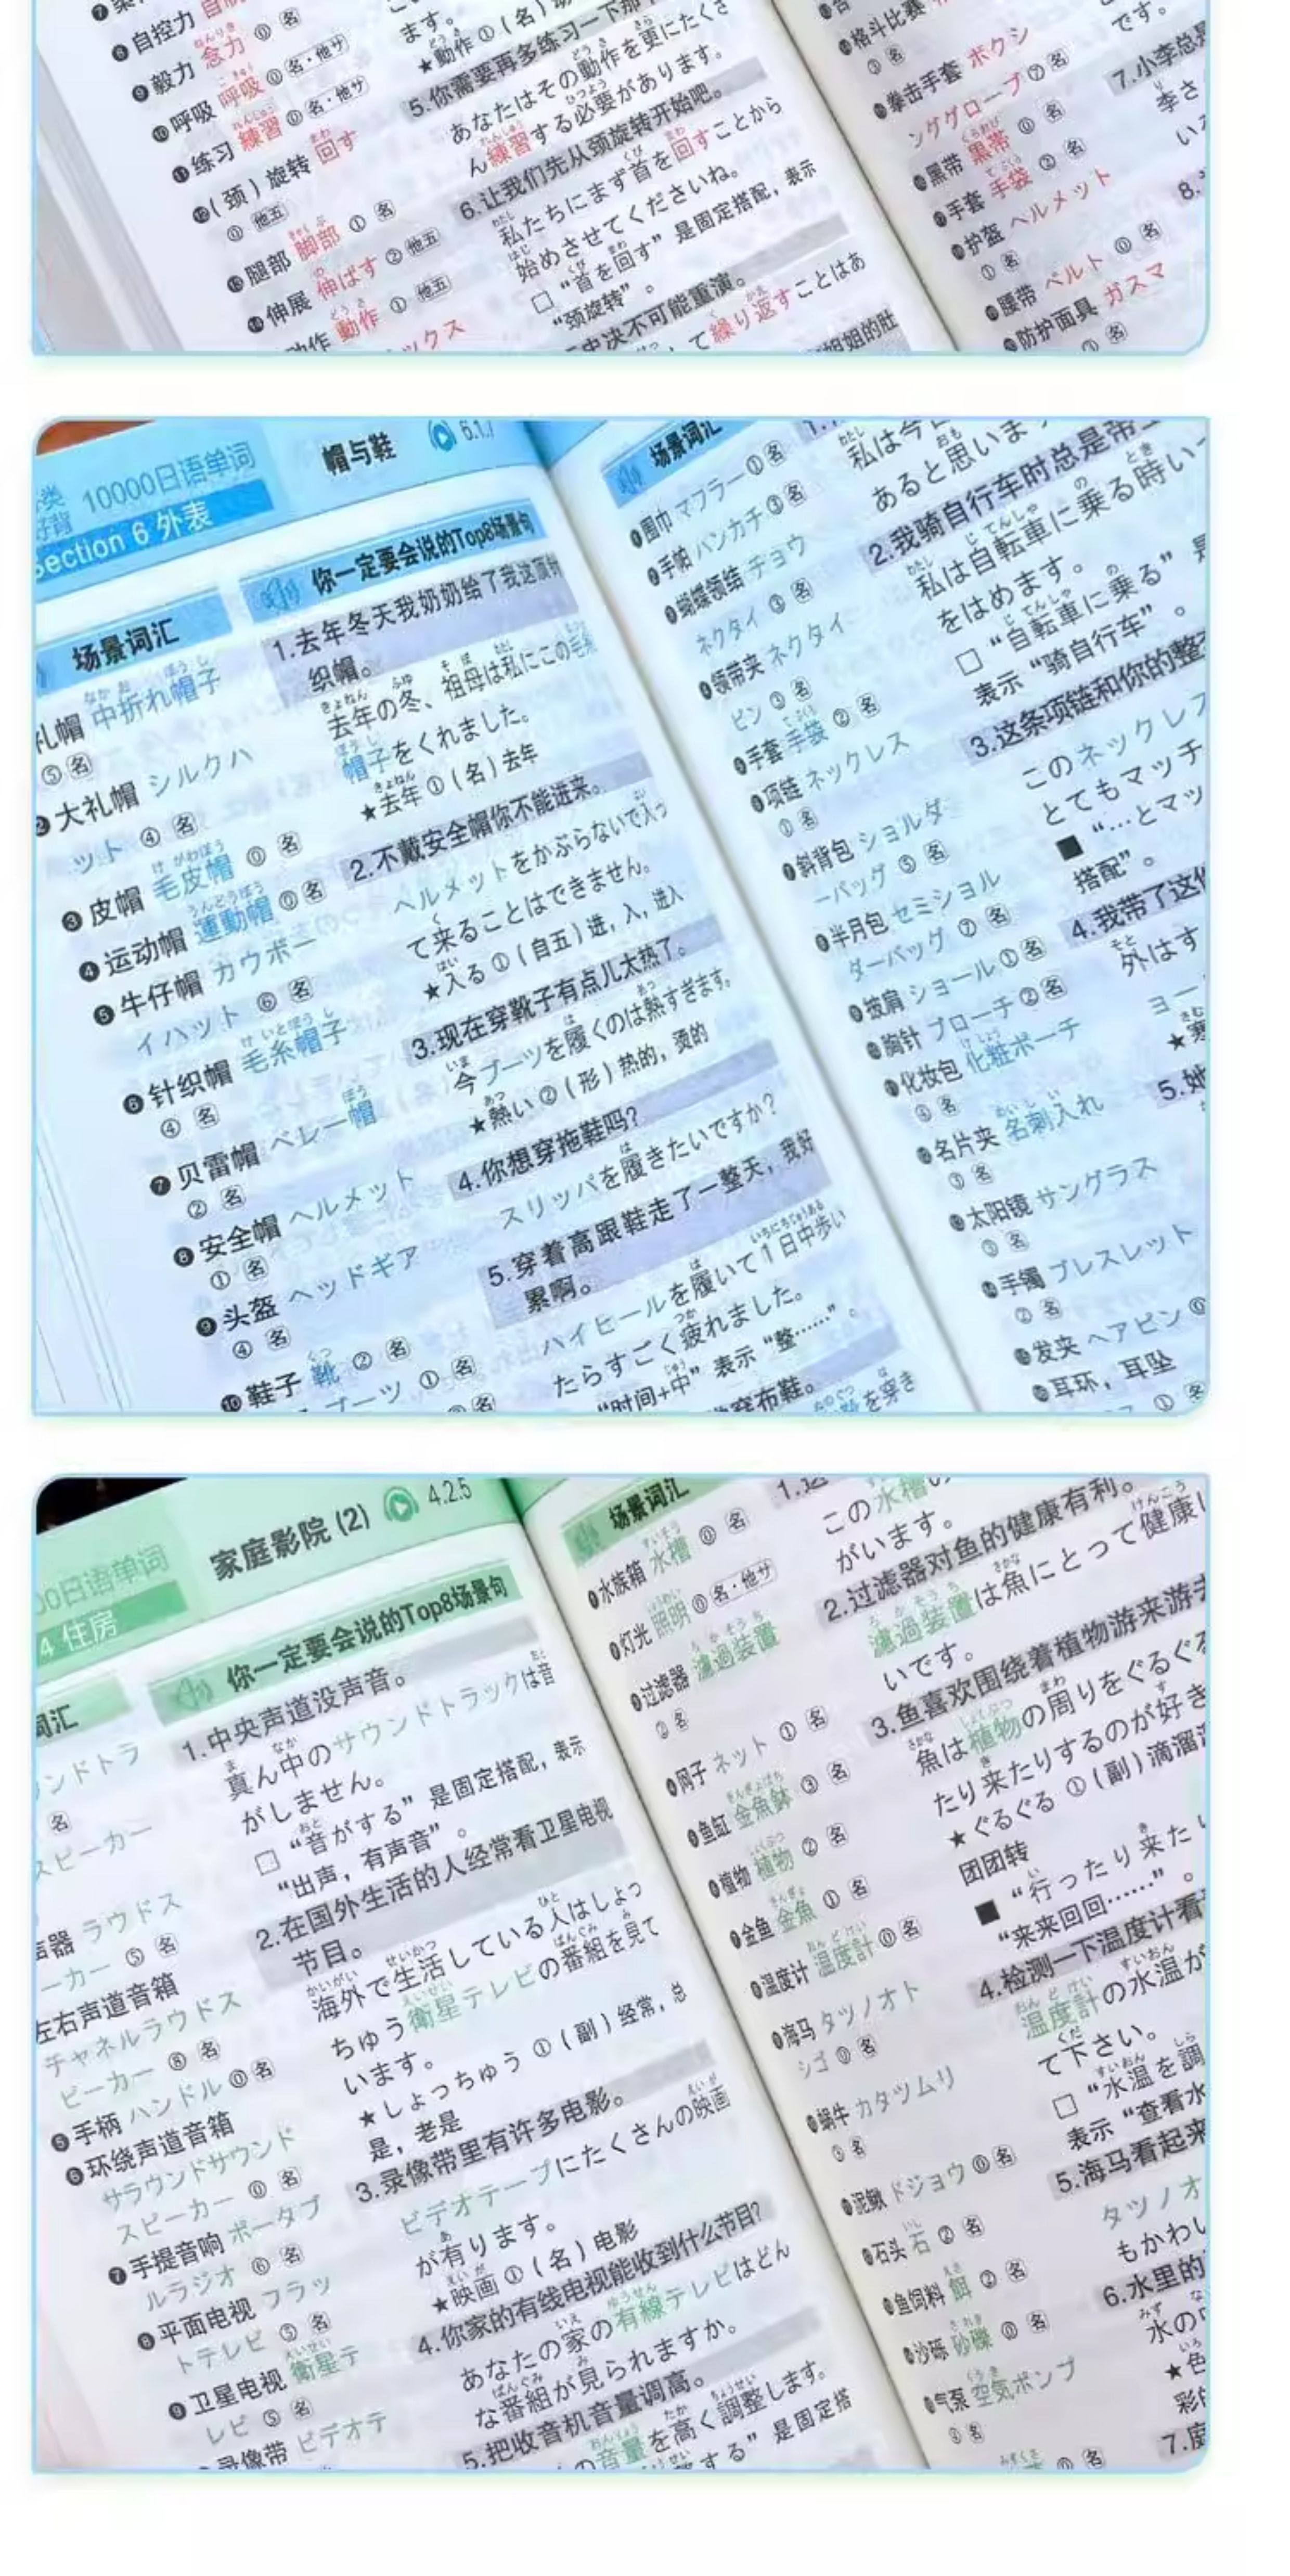 自控力
⑨毅力 念力 ⓪ 名
⑩呼吸 呼吸 ⓪ 名・他サ
⑪练习 練習 ⓪ 名・他サ
⑫(颈)旋转 回す
⓪ 他五
⑬腿部 脚部 ① 名
⑭伸展 伸ばす ② 他五
动作 動作 ① 他五
ックス
ます。
★動作 ① (名)
5.你需要再多练习一下那
あなたはその動作を更にたくさ
ん練習する必要があります。
6.让我们先从颈旋转开始吧。
私たちにまず首を回すことから
始めさせてくださいね。
□ “首を回す” 是固定搭配，表示
“颈旋转”。
史决不可能重演。
して繰り返すことはあ
姐姐的肚
格斗比赛
③ 名
拳击手套 ボクシ
ンググローブ ⑦ 名
黑带 黒帯 ⓪ 名
手套 手袋 ② 名
护盔 ヘルメット
① 名
腰带 ベルト ⓪ 名
防护面具 ガスマ
です。
7.小李总是
李さ
い
8.
10000日语单词
Section 6 外表
帽与鞋
6.1.1
场景词汇
礼帽 中折れ帽子
⑤ 名
②大礼帽 シルクハ
ット ④ 名
③皮帽 毛皮帽 ⓪ 名
④运动帽 運動帽 ⓪ 名
⑤牛仔帽 カウボー
イハット ⑥ 名
⑥针织帽 毛糸帽子
④ 名
⑦贝雷帽 ベレー帽
② 名
⑧安全帽 ヘルメット
① 名
⑨头盔 ヘッドギア
④ 名
⑩鞋子 靴 ② 名
ブーツ ① 名
你一定要会说的Top8场景句
1.去年冬天我奶奶给了我这顶针
织帽。
去年の冬、祖母は私にこの毛糸
帽子をくれました。
★去年 ① (名) 去年
2.不戴安全帽你不能进来。
ヘルメットをかぶらないで入っ
て来ることはできません。
★入る ① (自五) 进，入，进入
3.现在穿靴子有点儿太热了。
今ブーツを履くのは熱すぎます。
★熱い ② (形) 热的，烫的
4.你想穿拖鞋吗？
スリッパを履きたいですか？
5.穿着高跟鞋走了一整天，我好
累啊。
ハイヒールを履いて1日中歩い
たらすごく疲れました。
“时间+中” 表示 “整……”。
穿布鞋。
を穿き
场景词汇
①围巾 マフラー ① 名
②手帕 ハンカチ ③ 名
③蝴蝶领结 チョウ
ネクタイ ③ 名
④领带夹 ネクタイ
ピン ③ 名
⑤手套 手袋 ② 名
⑥项链 ネックレス
① 名
⑦斜背包 ショルダ
ーバッグ ⑤ 名
⑧半月包 セミショル
ダーバッグ ⑦ 名
⑨披肩 ショール ① 名
⑩胸针 ブローチ ② 名
⑪化妆包 化粧ポーチ
④ 名
⑫名片夹 名刺入れ
③ 名
⑬太阳镜 サングラス
③ 名
⑭手镯 ブレスレット
② 名
⑮发夹 ヘアピン ⓪
⑯耳环，耳坠
私は今
あると思いま
2.我骑自行车时总是带
私は自転車に乗る時い
をはめます。
□ “自転車に乗る”
表示 “骑自行车”。
3.这条项链和你的整
このネックレス
とてもマッチ
■ “…とマッ
搭配”。
4.我带了这件
外はす
ヨー
★寒
5.她
00日语单词
4 住房
家庭影院 (2)
4.2.5
词汇
ンドトラ
名
スピーカー
声器 ラウドス
ーカー ⑤ 名
左右声道音箱
チャネルラウドス
ピーカー ⑧ 名
⑤手柄 ハンドル ⓪ 名
⑥环绕声道音箱
サラウンドサウンド
スピーカー ⓪ 名
⑦手提音响 ポータブ
ルラジオ ⑥ 名
⑧平面电视 フラッ
トテレビ ⑤ 名
⑨卫星电视 衛星テ
レビ ⑤ 名
录像带 ビデオテ
你一定要会说的Top8场景句
1.中央声道没声音。
真ん中のサウンドトラックは音
がしません。
□ “音がする” 是固定搭配，表示
“出声，有声音”。
2.在国外生活的人经常看卫星电视
节目。
海外で生活している人はしょっ
ちゅう衛星テレビの番組を見て
います。
★しょっちゅう ① (副) 经常，总
是，老是
3.录像带里有许多电影。
ビデオテープにたくさんの映画
が有ります。
★映画 ① (名) 电影
4.你家的有线电视能收到什么节目?
あなたの家の有線テレビはどん
な番組が見られますか。
5.把收音机音量调高。
の音量を高く調整します。
する” 是固定搭
场景词汇
①水族箱 水槽 ⓪ 名
②灯光 照明 ⓪ 名・他サ
③过滤器 濾過装置
② 名
④网子 ネット ① 名
⑤鱼缸 金魚鉢 ③ 名
⑥植物 植物 ② 名
⑦金鱼 金魚 ① 名
⑧温度计 温度計 ⓪ 名
⑨海马 タツノオト
シゴ ⓪ 名
蜗牛 カタツムリ
③ 名
泥鳅 ドジョウ ⓪ 名
石头 石 ② 名
鱼饲料 餌 ② 名
沙砾 砂礫 ⓪ 名
气泵 空気ポンプ
この水槽の
がいます。
2.过滤器对鱼的健康有利。
濾過装置は魚にとって健康
いです。
3.鱼喜欢围绕着植物游来游去
魚は植物の周りをぐるぐる
たり来たりするのが好き
★ぐるぐる ① (副) 滴溜溜
团团转
■ “行ったり来た
“来来回回……”。
4.检测一下温度计看
温度計の水温が
て下さい。
□ “水温を調
表示 “查看水
5.海马看起来
タツノオ
もかわい
6.水里的
水の
★色
彩
7.